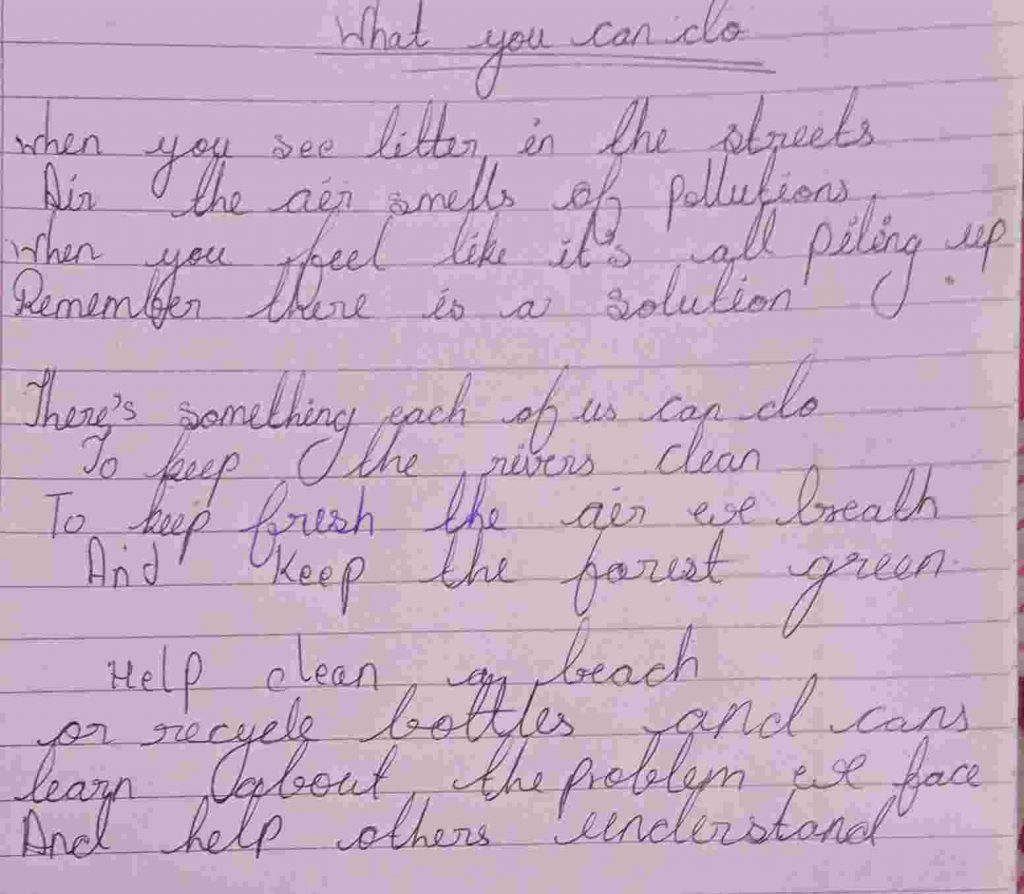 What you can do
when you see litter in the streets
Air the air smells of pollutions
When you feel like it's all piling up
Remember there is a solution
There's something each of us can do
To keep the rivers clean
To keep fresh the air we breath
And Keep the forest green
Help clean a beach
or recycle bottles and cans
learn about the problem we face
And help others understand